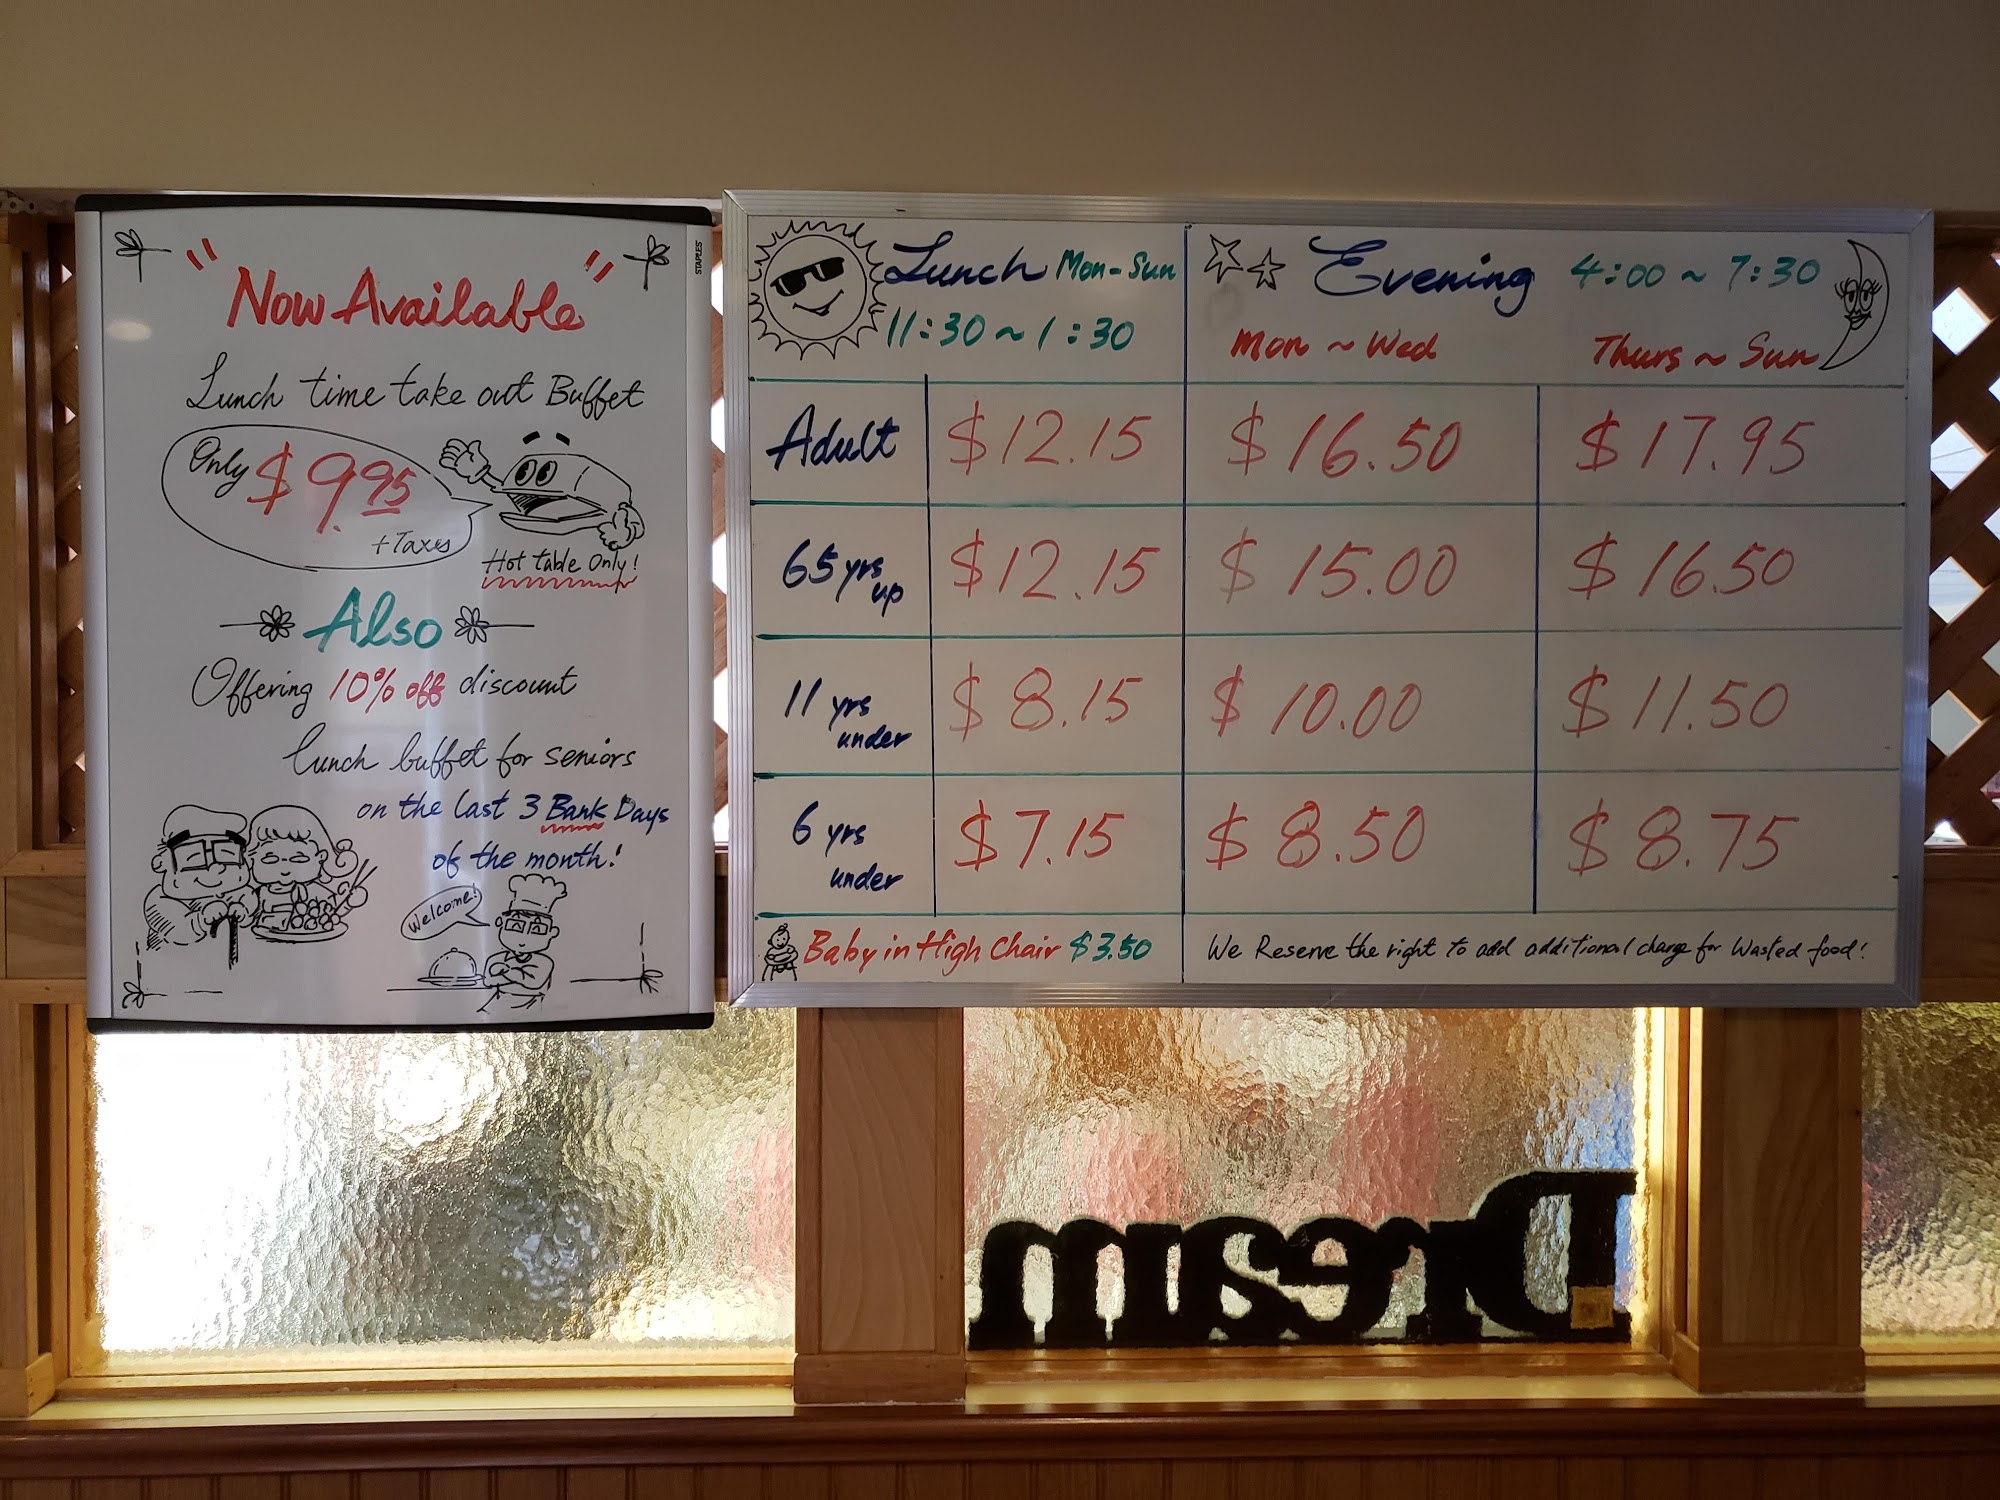 "Now Available"
Lunch time take out Buffet
Only $9.95
+Taxes
Hot table Only!
Also
Offering 10% off discount
lunch buffet for seniors
on the last 3 Bank Days
of the month!
Welcome!
STAPLES
Lunch Mon-Sun
11:30 ~ 1:30
Evening 4:00 ~ 7:30
Mon ~ Wed Thurs ~ Sun
Adult $12.15 $16.50 $17.95
65 yrs up $12.15 $15.00 $16.50
11 yrs under $8.15 $10.00 $11.50
6 yrs under $7.15 $8.50 $8.75
Baby in High Chair $3.50
We Reserve the right to add additional charge for Wasted food!
Dream